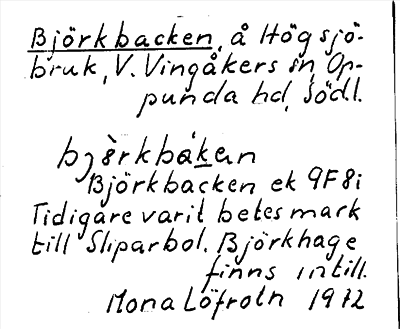 Björkbacken, å Högsjö-
bruk, V. Vingåkers sn, Op-
punda hd, Södl.
bjèrkbákan
Björkbacken ek 9F8i
Tidigare varit betesmark
till Sliparbol. Björkhage
finns intill.
Mona Löfroth 1972